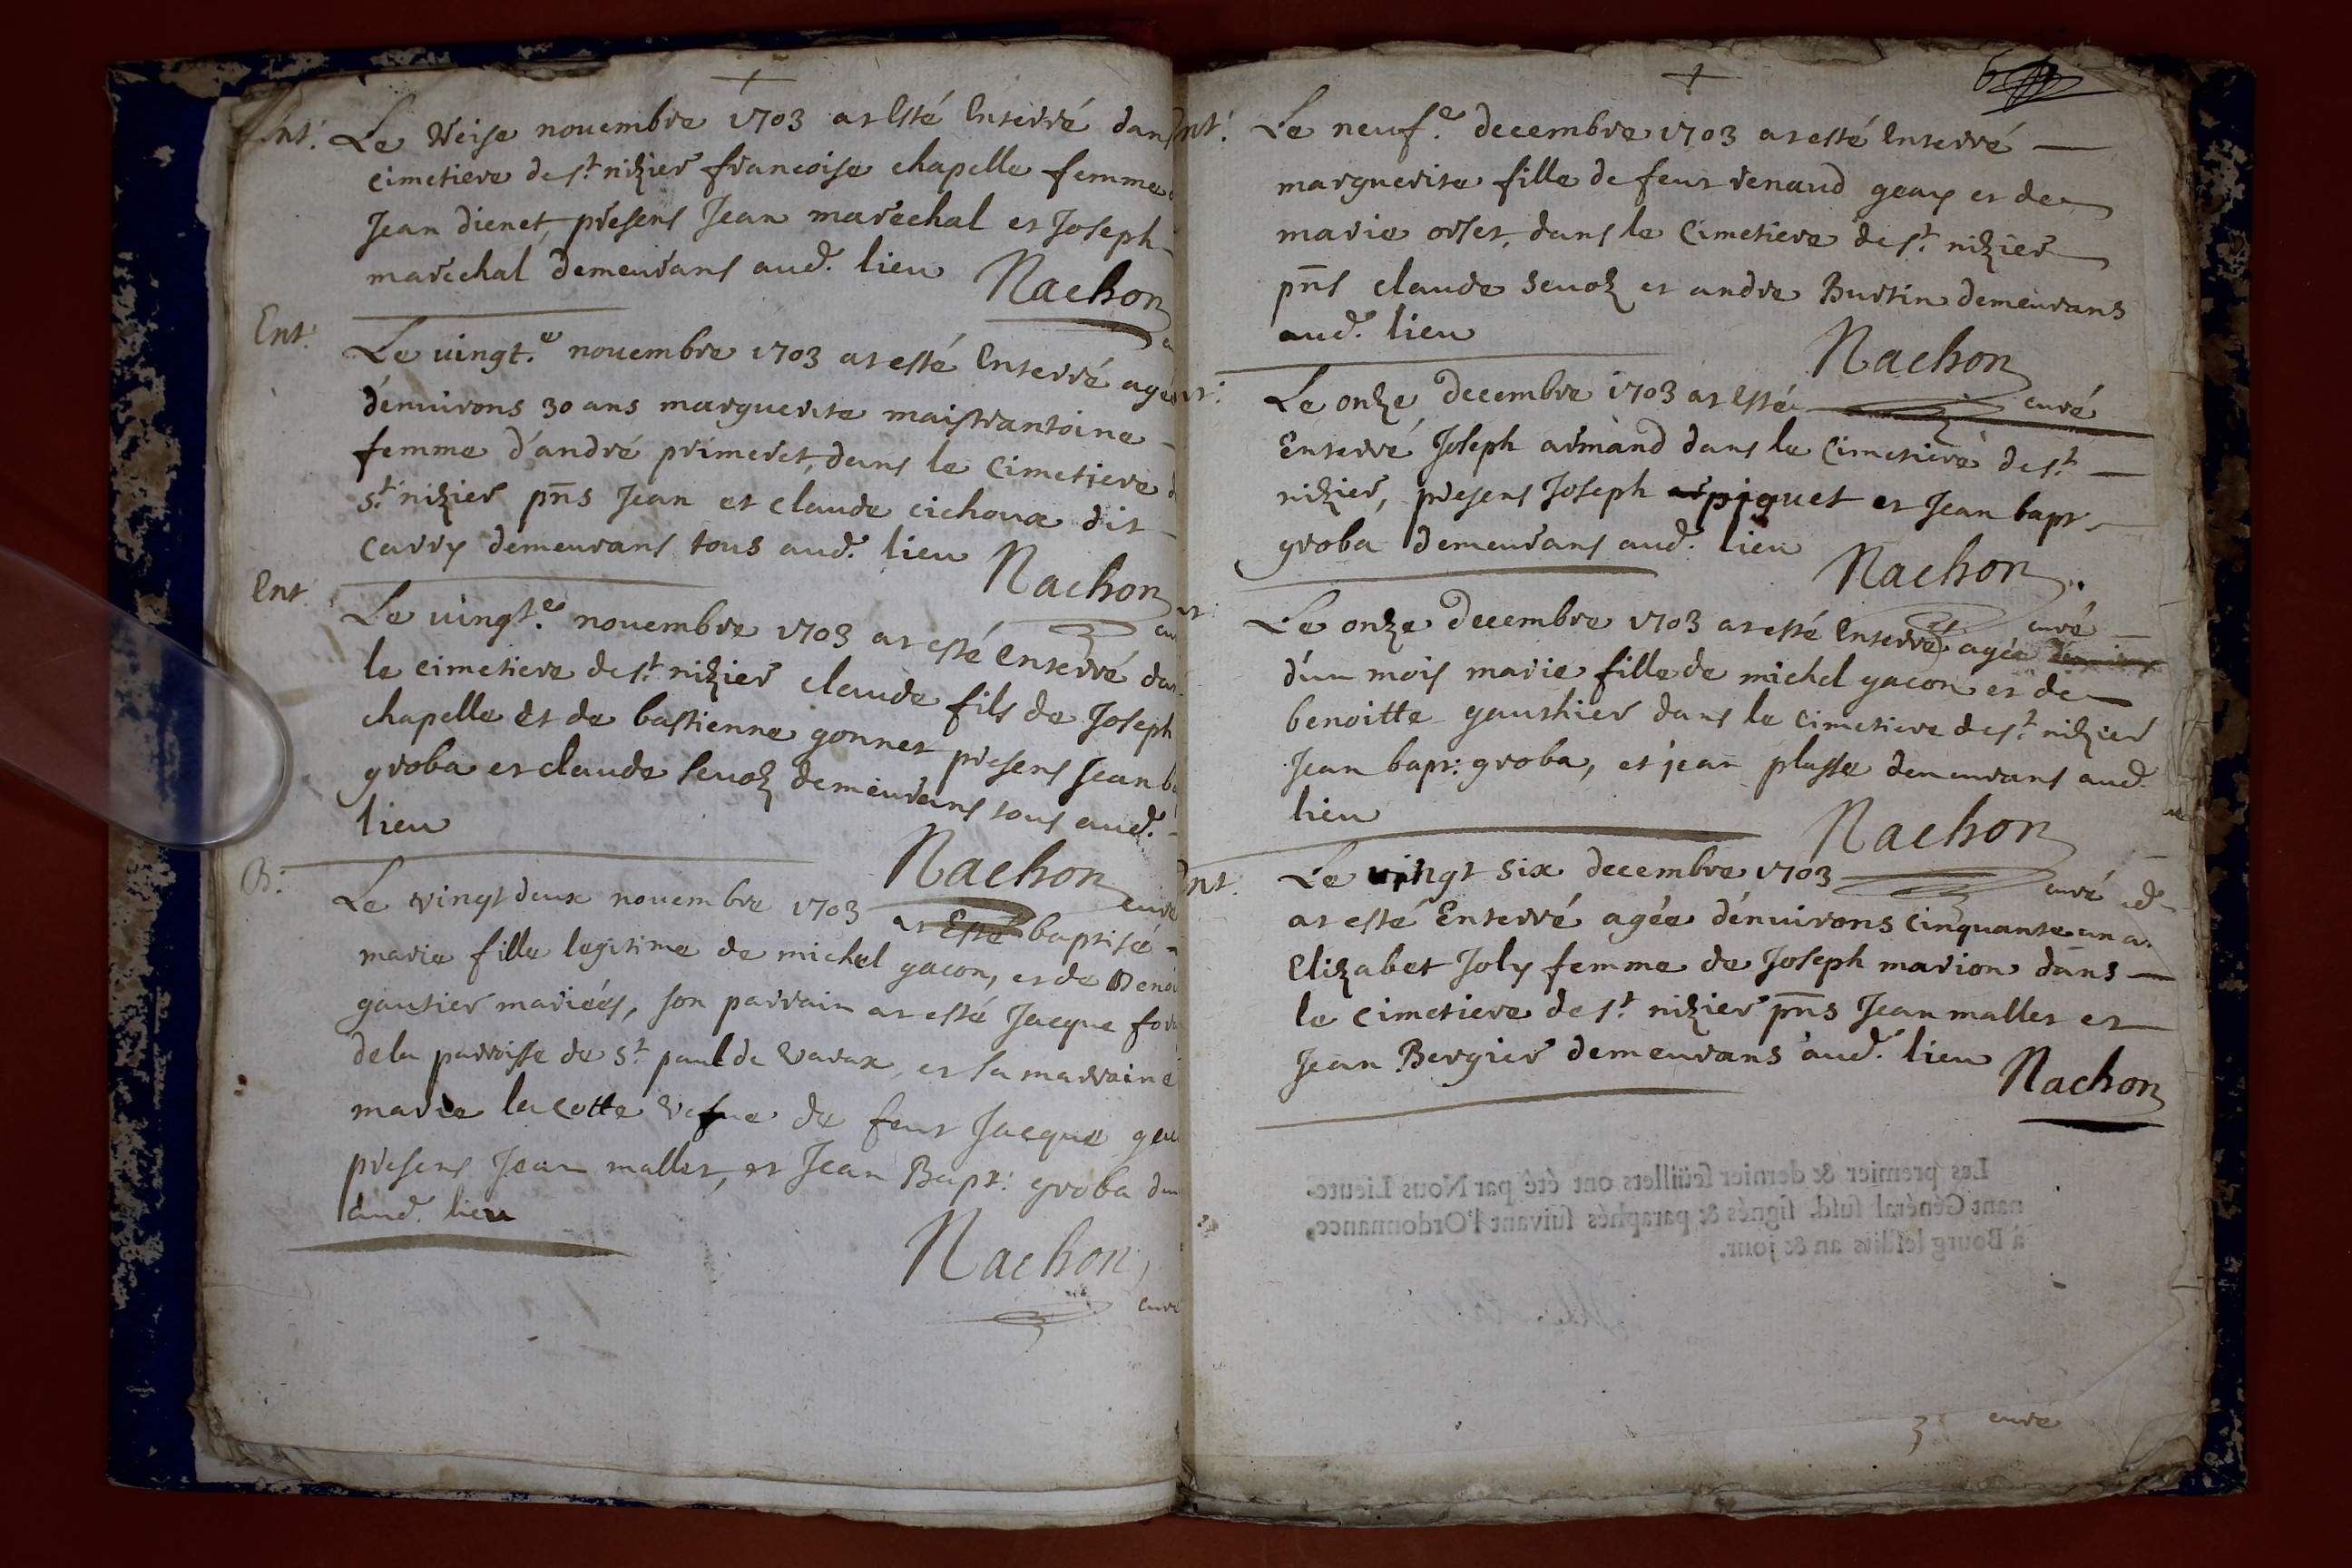 Ent: Le treise novembre 1703 at Esté Enterré dans
cimetiere de st. nizier francoise chapelle femme
Jean dienet, presens Jean marechal et Joseph
marechal demeurans aud. lieu Nachon
Ent: Le vingt.e novembre 1703 at esté Enterré agée
d'enuirons 30 ans marguerite maistrantoine
femme d'andré primeret, dans le Cimetiere
st. nizier pns Jean et claude cichoux dit
Carry demeurans tous aud. lieu Nachon
Ent Le vingt.e novembre 1703 at esté Enterré
le cimetiere de st. nizier claude fils de Joseph
chapelle et de bastienne gonnet presens Jean
groba et claude sevoz demeurans tous aud.
lieu
Nachon curé
B: Le vingt deux novembre 1703 at Esté baptisé
marie fille legitime de michel gacon, et de
gautier mariées, son parrain at esté Jacque
de la parroisse de st. paul de varax, et sa marraine
marie la cotte vefue de feut Jacque
presens Jean mallet, et Jean Bapt: groba
aud. lieu
Nachon
curé
Ent: Le neuf.e decembre 1703 at esté Enterré
marguerite fille de feut renaud geay et de
marie orset, dans le Cimetiere de st. nizier
pns claude sevoz et andre Burtin demeurans
aud. lieu
Nachon
curé
Le onze decembre 1703 at Esté
Enterré Joseph armand dans le Cimetiere de st.
nizier, presens Joseph piquet et Jean bapt
groba demeurans aud. lieu
Nachon
curé
Le onze decembre 1703 at esté Enterré agée
d'un mois marie fille de michel gacon et de
benoitte gauthier dans le cimetiere de st. nizier
Jean bapt: groba, et jean plasse demeurans aud.
lieu
Nachon
curé
Ent. Le vingt six decembre 1703
at esté Enterré agée d'enuirons cinquante un a.
Elizabet Joly femme de Joseph marion dans
le cimetiere de st. nizier pns Jean mallet et
Jean Bergier demeurans aud. lieu
Nachon
Les premier & dernier feüillets ont été par Nous Lieute-
nant Général susd. signés & paraphés suivant l'Ordonnance,
à Bourg lesdits an & jour.
curé